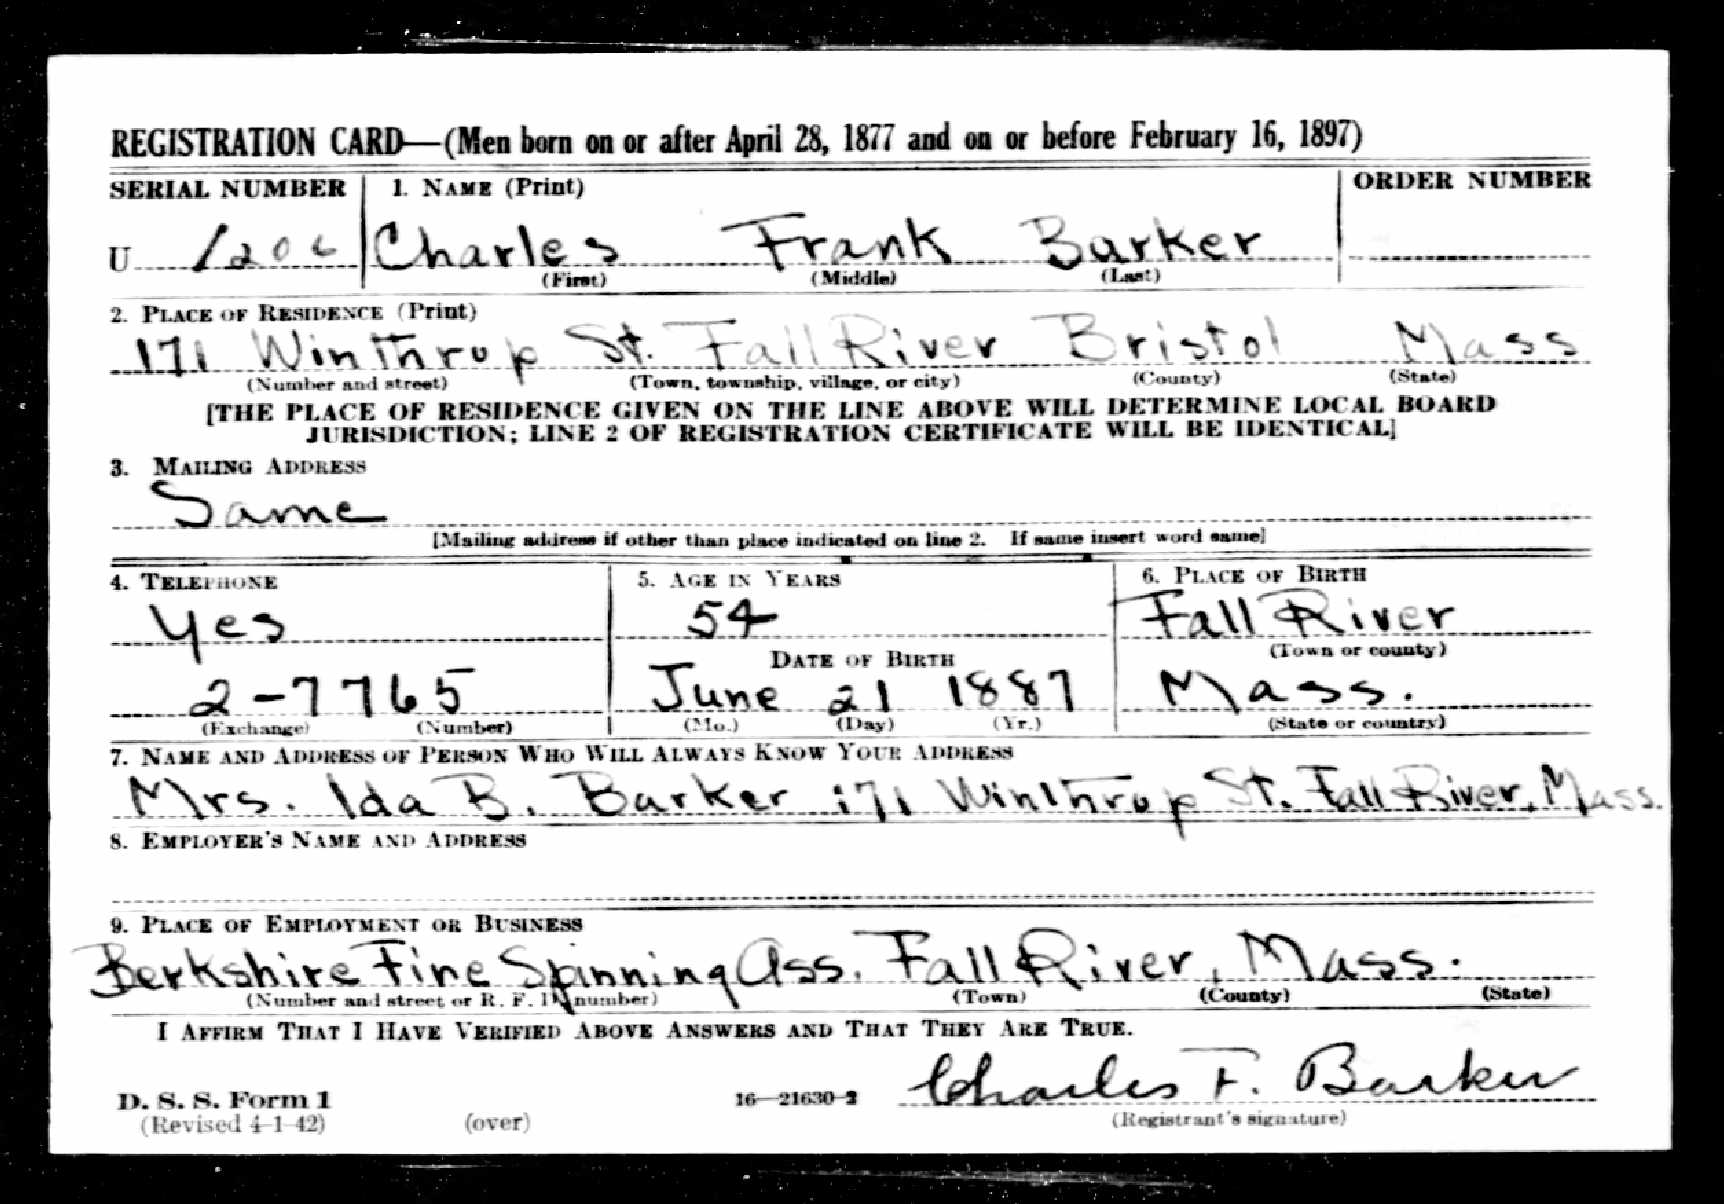 REGISTRATION CARD—(Men born on or after April 28, 1877 and on or before February 16, 1897)
SERIAL NUMBER 1. NAME (Print) ORDER NUMBER
U Charles Frank Barker
(First) (Middle) (Last)
2. PLACE OF RESIDENCE (Print)
171 Winthrop St. Fall River Bristol Mass
(Number and street) (Town, township, village, or city) (County) (State)
[THE PLACE OF RESIDENCE GIVEN ON THE LINE ABOVE WILL DETERMINE LOCAL BOARD
JURISDICTION; LINE 2 OF REGISTRATION CERTIFICATE WILL BE IDENTICAL]
3. MAILING ADDRESS
Same
[Mailing address if other than place indicated on line 2. If same insert word same]
4. TELEPHONE 5. AGE IN YEARS 6. PLACE OF BIRTH
Yes 54 Fall River
DATE OF BIRTH (Town or county)
2-7765 June 21 1887 Mass.
(Exchange) (Number) (Mo.) (Day) (Yr.) (State or country)
7. NAME AND ADDRESS OF PERSON WHO WILL ALWAYS KNOW YOUR ADDRESS
Mrs. Ida B. Barker 171 Winthrop St. Fall River, Mass.
8. EMPLOYER'S NAME AND ADDRESS
9. PLACE OF EMPLOYMENT OR BUSINESS
Berkshire Fine Spinning Ass. Fall River, Mass.
(Number and street or R. F. D. number) (Town) (County) (State)
I AFFIRM THAT I HAVE VERIFIED ABOVE ANSWERS AND THAT THEY ARE TRUE.
Charles F. Barker
D. S. S. Form 1 16—21630-2
(Revised 4-1-42) (over) (Registrant's signature)